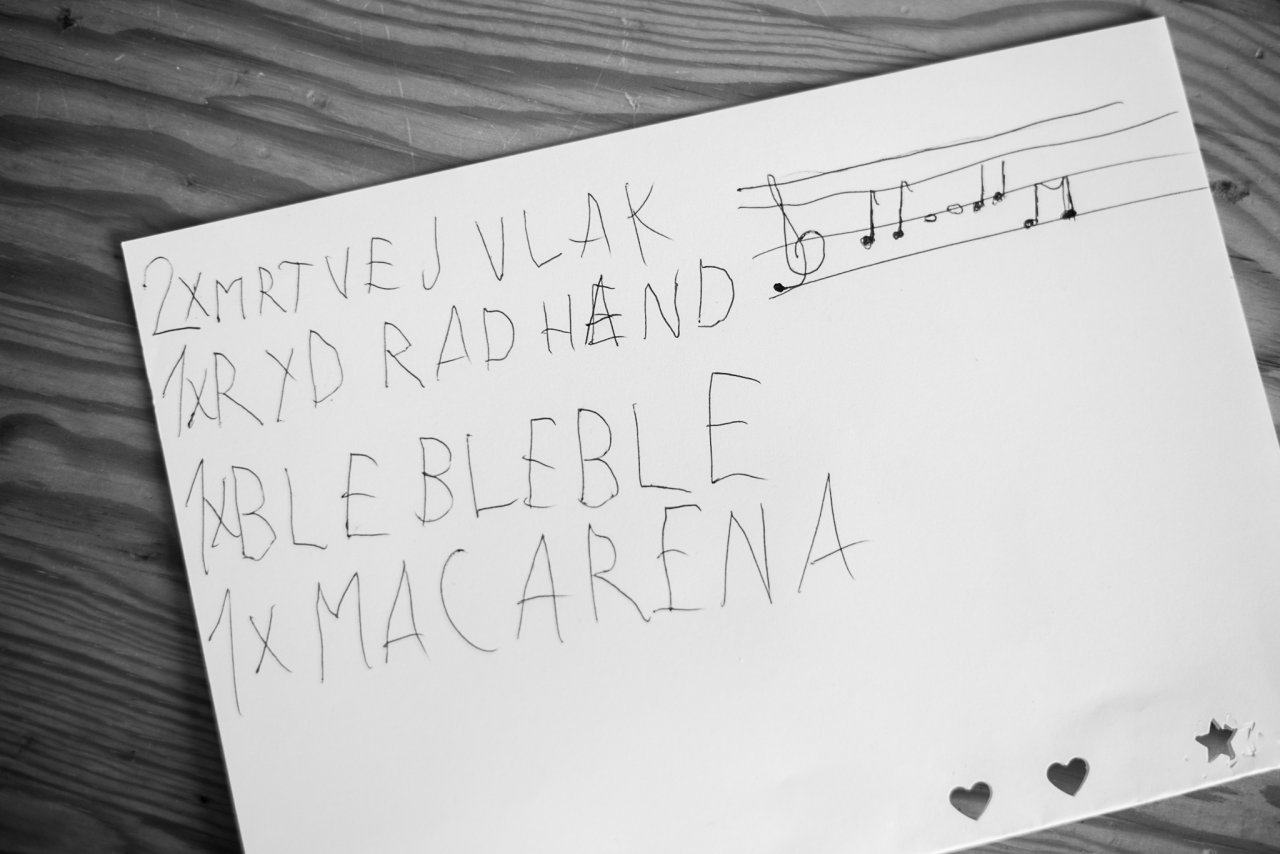 2X MRTVEJ VLAK
1X RYD RAD HAND
1X BLE BLEBLE
1X MACARENA